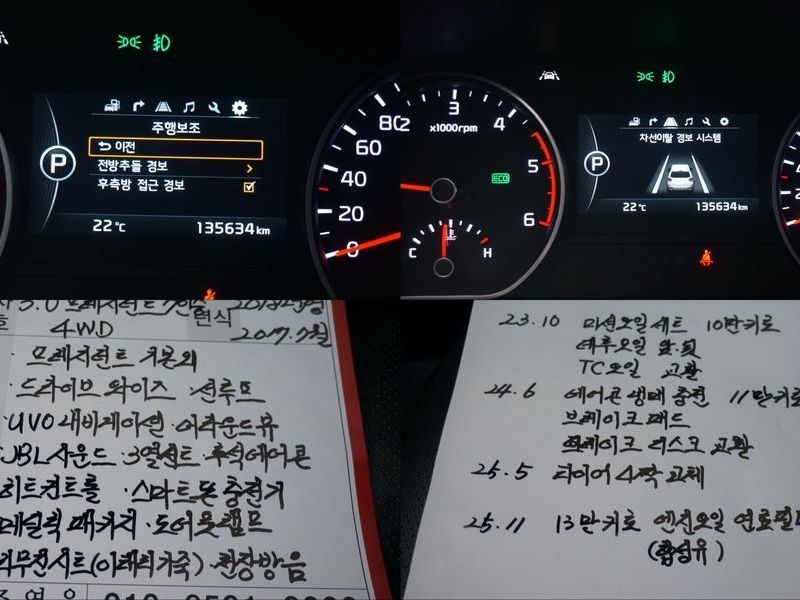 주행보조
이전
전방추돌 경보
후측방 접근 경보
P
22℃
135634km
80
60
40
20
0
x1000rpm
2
3
4
5
6
ECO
C
H
차선이탈 경보 시스템
P
22℃
135634km
3.0 프레지던트 7인승
현식
4WD
2017.7월
· 프레지던트 기본외
· 드라이브 와이즈 · 선루프
UVO 내비게이션 · 어라운드뷰
JBL사운드 · 3열센트 · 후석에어콘
히트컨트롤 · 스마트폰 충전기
메탈릭 패키지 · 도어풋램프
(이태리가죽) · 천장방음
23.10 미션오일세트 10만키로
데후오일 앞·뒷
TC오일 교환
24.6 에어콘 냉매 충전 11만키로
브레이크 패드
브레이크 디스크 교환
25.5 타이어 4짝 교체
25.11 13만키로 엔진오일 연료필터
(합성유)